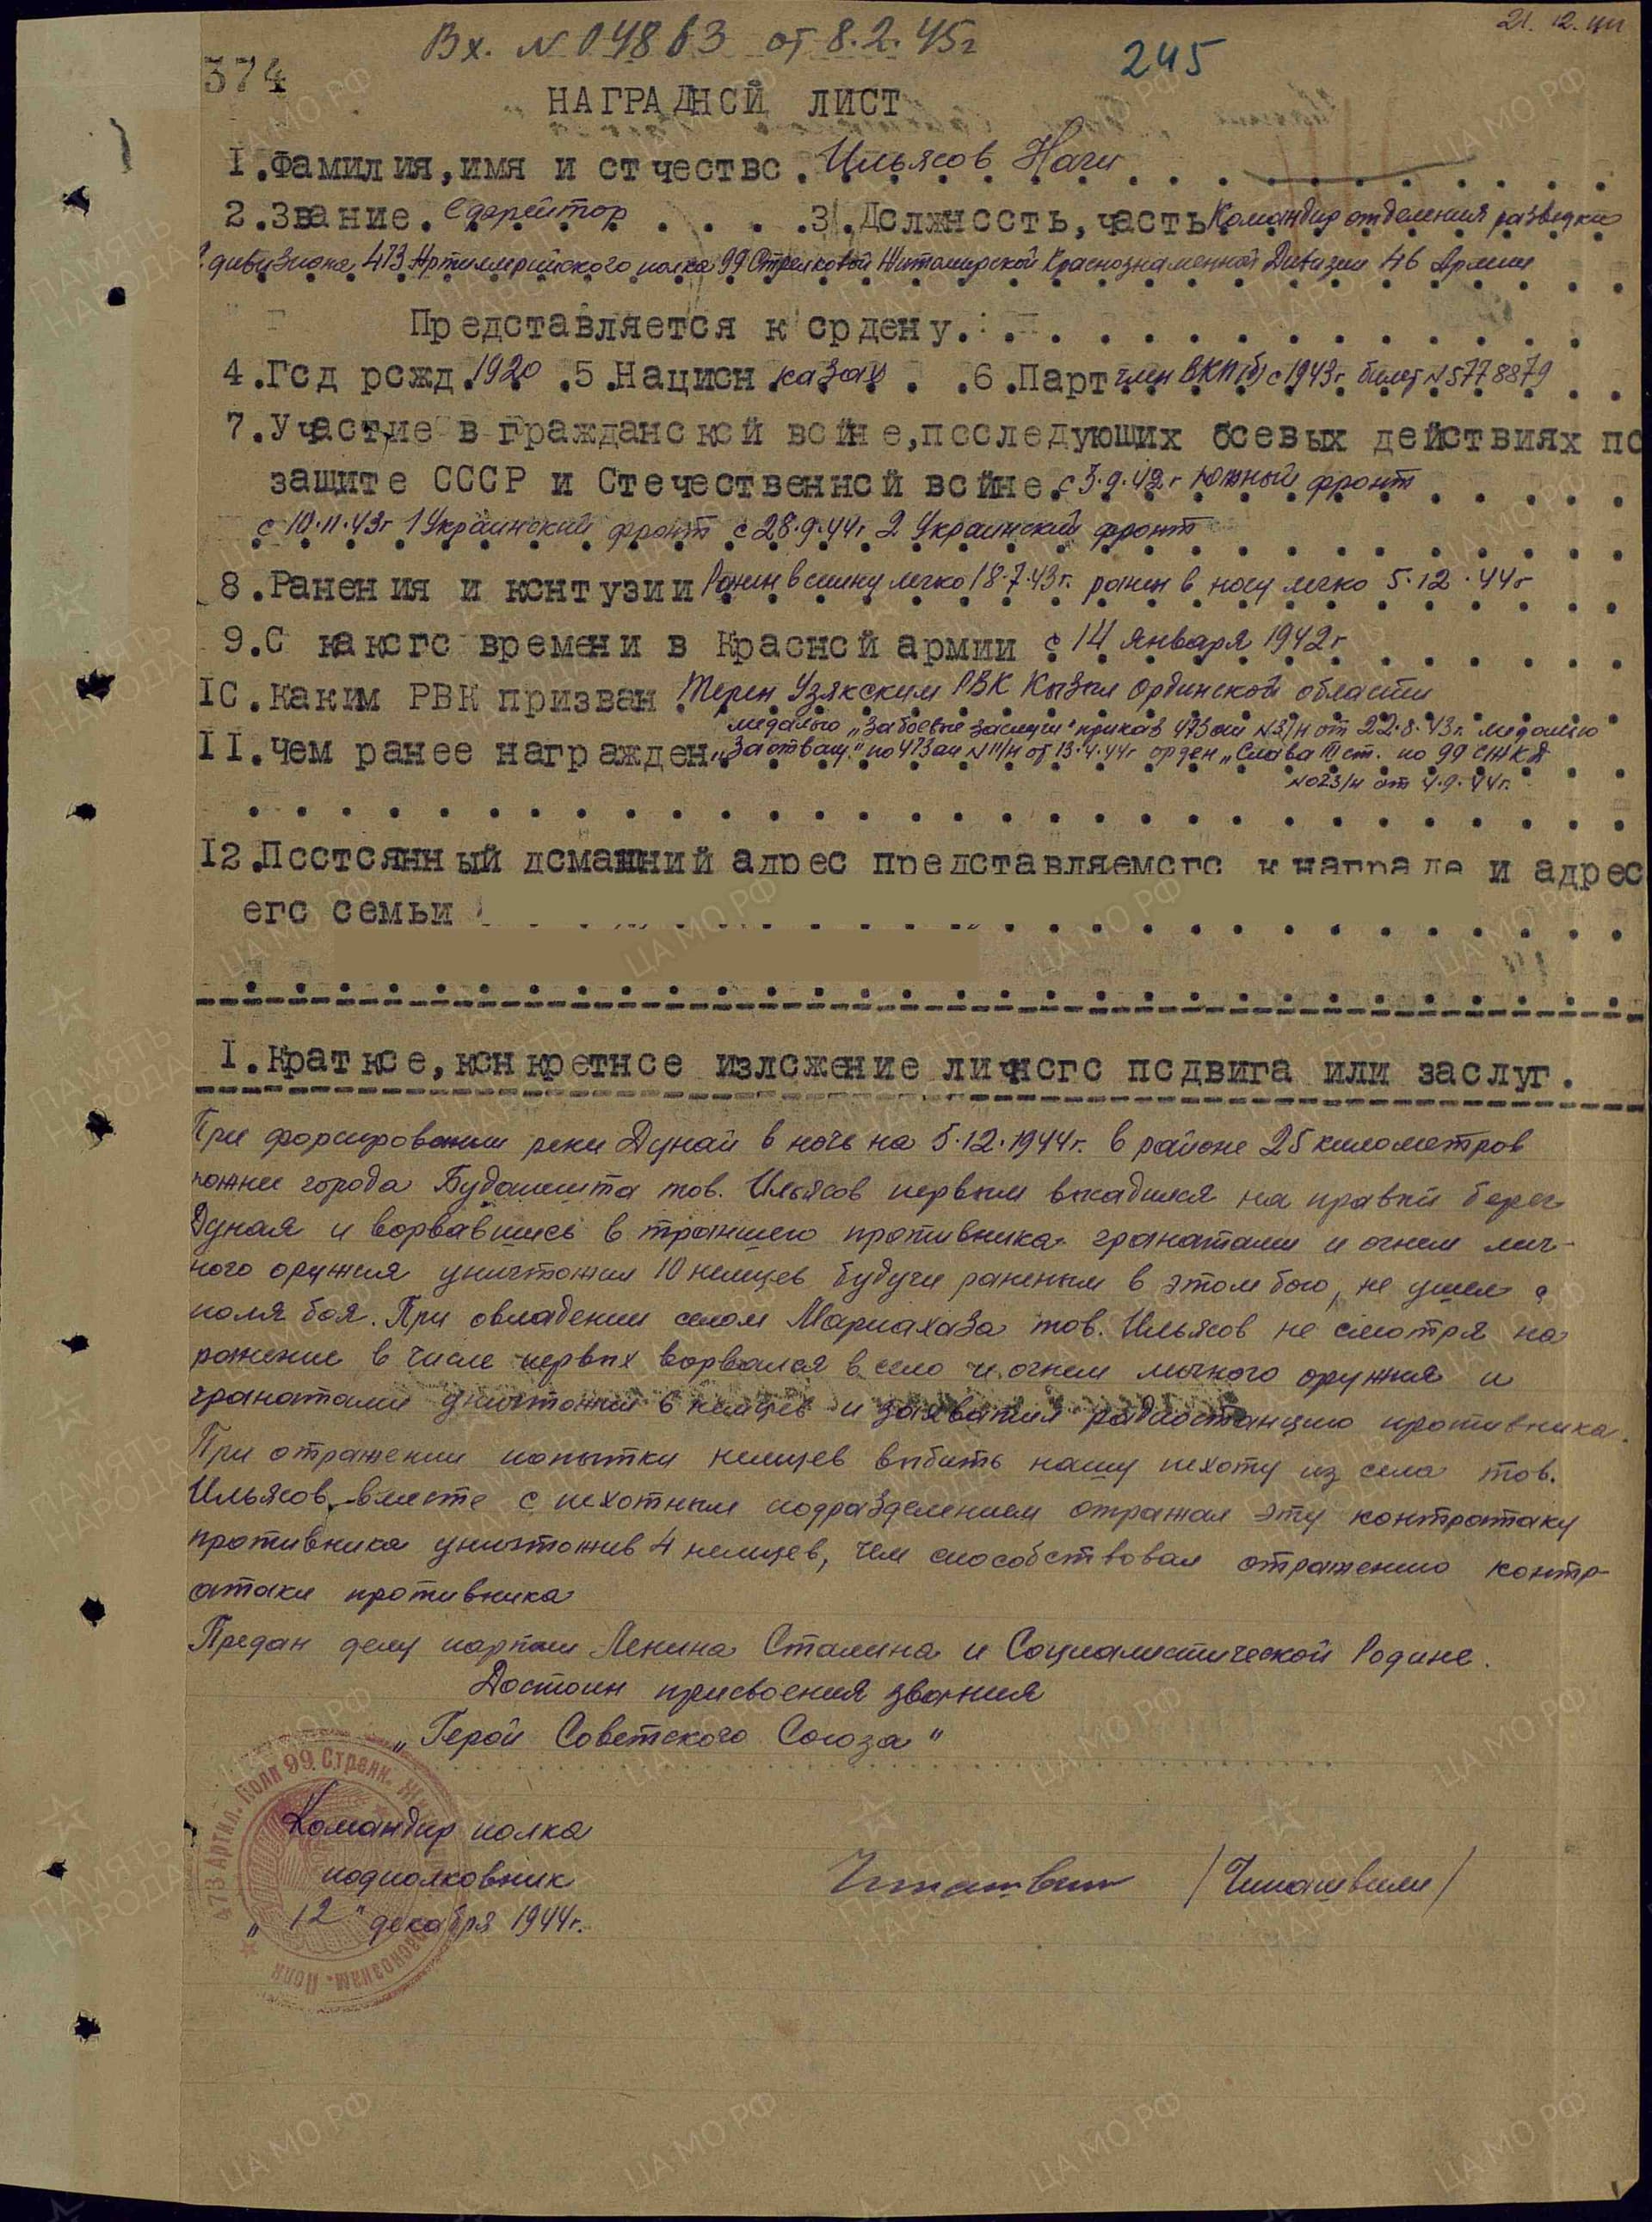 Вх. N 04863 от 8.2.45г
245
21. 12.
374
НАГРАДНОЙ ЛИСТ
1.Фамилия,имя и отчество. Ильясов Наги
2.Звание. Ефрейтор 3.Должность, часть Командир отделения разведки
дивизиона 473 Артиллерийского полка 99 Стрелковой Житомирской Краснознаменной Дивизии 46 Армии
Представляется к ордену.
4.Год рожд. 1920 .5.Национ. казах .6.Парт член ВКП(б) с 1943г билет N 5778879
7.Участие в гражданской войне,последующих боевых действиях по
защите СССР и Отечественной войне. с 3.9.42г Южный фронт
с 10.11.43г 1 Украинский фронт с 28.9.44г 2 Украинский фронт
8.Ранения и контузии Ранен в спину легко 18.7.43г. ранен в ногу легко 5.12.44г
9.С какого времени в Красной армии с 14 января 1942г
10.Каким РВК призван. Терен Узякским РВК Кызыл Ординской области
медалью „За боевые заслуги" приказ 473 ап N3/н от 22.8.43г. медалью
11.чем ранее награжден „За отвагу" по 473 ап N /н от 13.4.44г орден „Слава III ст. по 99 СЖКД
N023/н от 4.9.44г.
12.Постоянный домашний адрес представляемого к награде и адрес
его семьи
1.Краткое,конкретное изложение личного подвига или заслуг.
При форсировании реки Дунай в ночь на 5.12.1944г. в районе 25 километров
южнее города Будапешта тов. Ильясов первым высадился на правый берег
Дуная и ворвавшись в траншею противника гранатами и огнем лич-
ного оружия уничтожил 10 немцев, будучи раненым в этом бою, не ушел с
поля боя. При овладении селом Мариахаза тов. Ильясов не смотря на
ранение в числе первых ворвался в село и огнем личного оружия и
гранатами уничтожил 6 немцев и захватил радиостанцию противника.
При отражении попытки немцев выбить нашу пехоту из села тов.
Ильясов вместе с пехотным подразделением отражал эту контратаку
противника уничтожив 4 немцев, чем способствовал отражению контр-
атаки противника
Предан делу партии Ленина Сталина и Социалистической Родине.
Достоин присвоения звания
„Герой Советского Союза"
473 Артил. Полк 99 Стрелк. Краснознам.
Командир полка
подполковник
/Читашвили/
„12" декабря 1944г.
ЦА МО РФ
ПАМЯТЬ НАРОДА